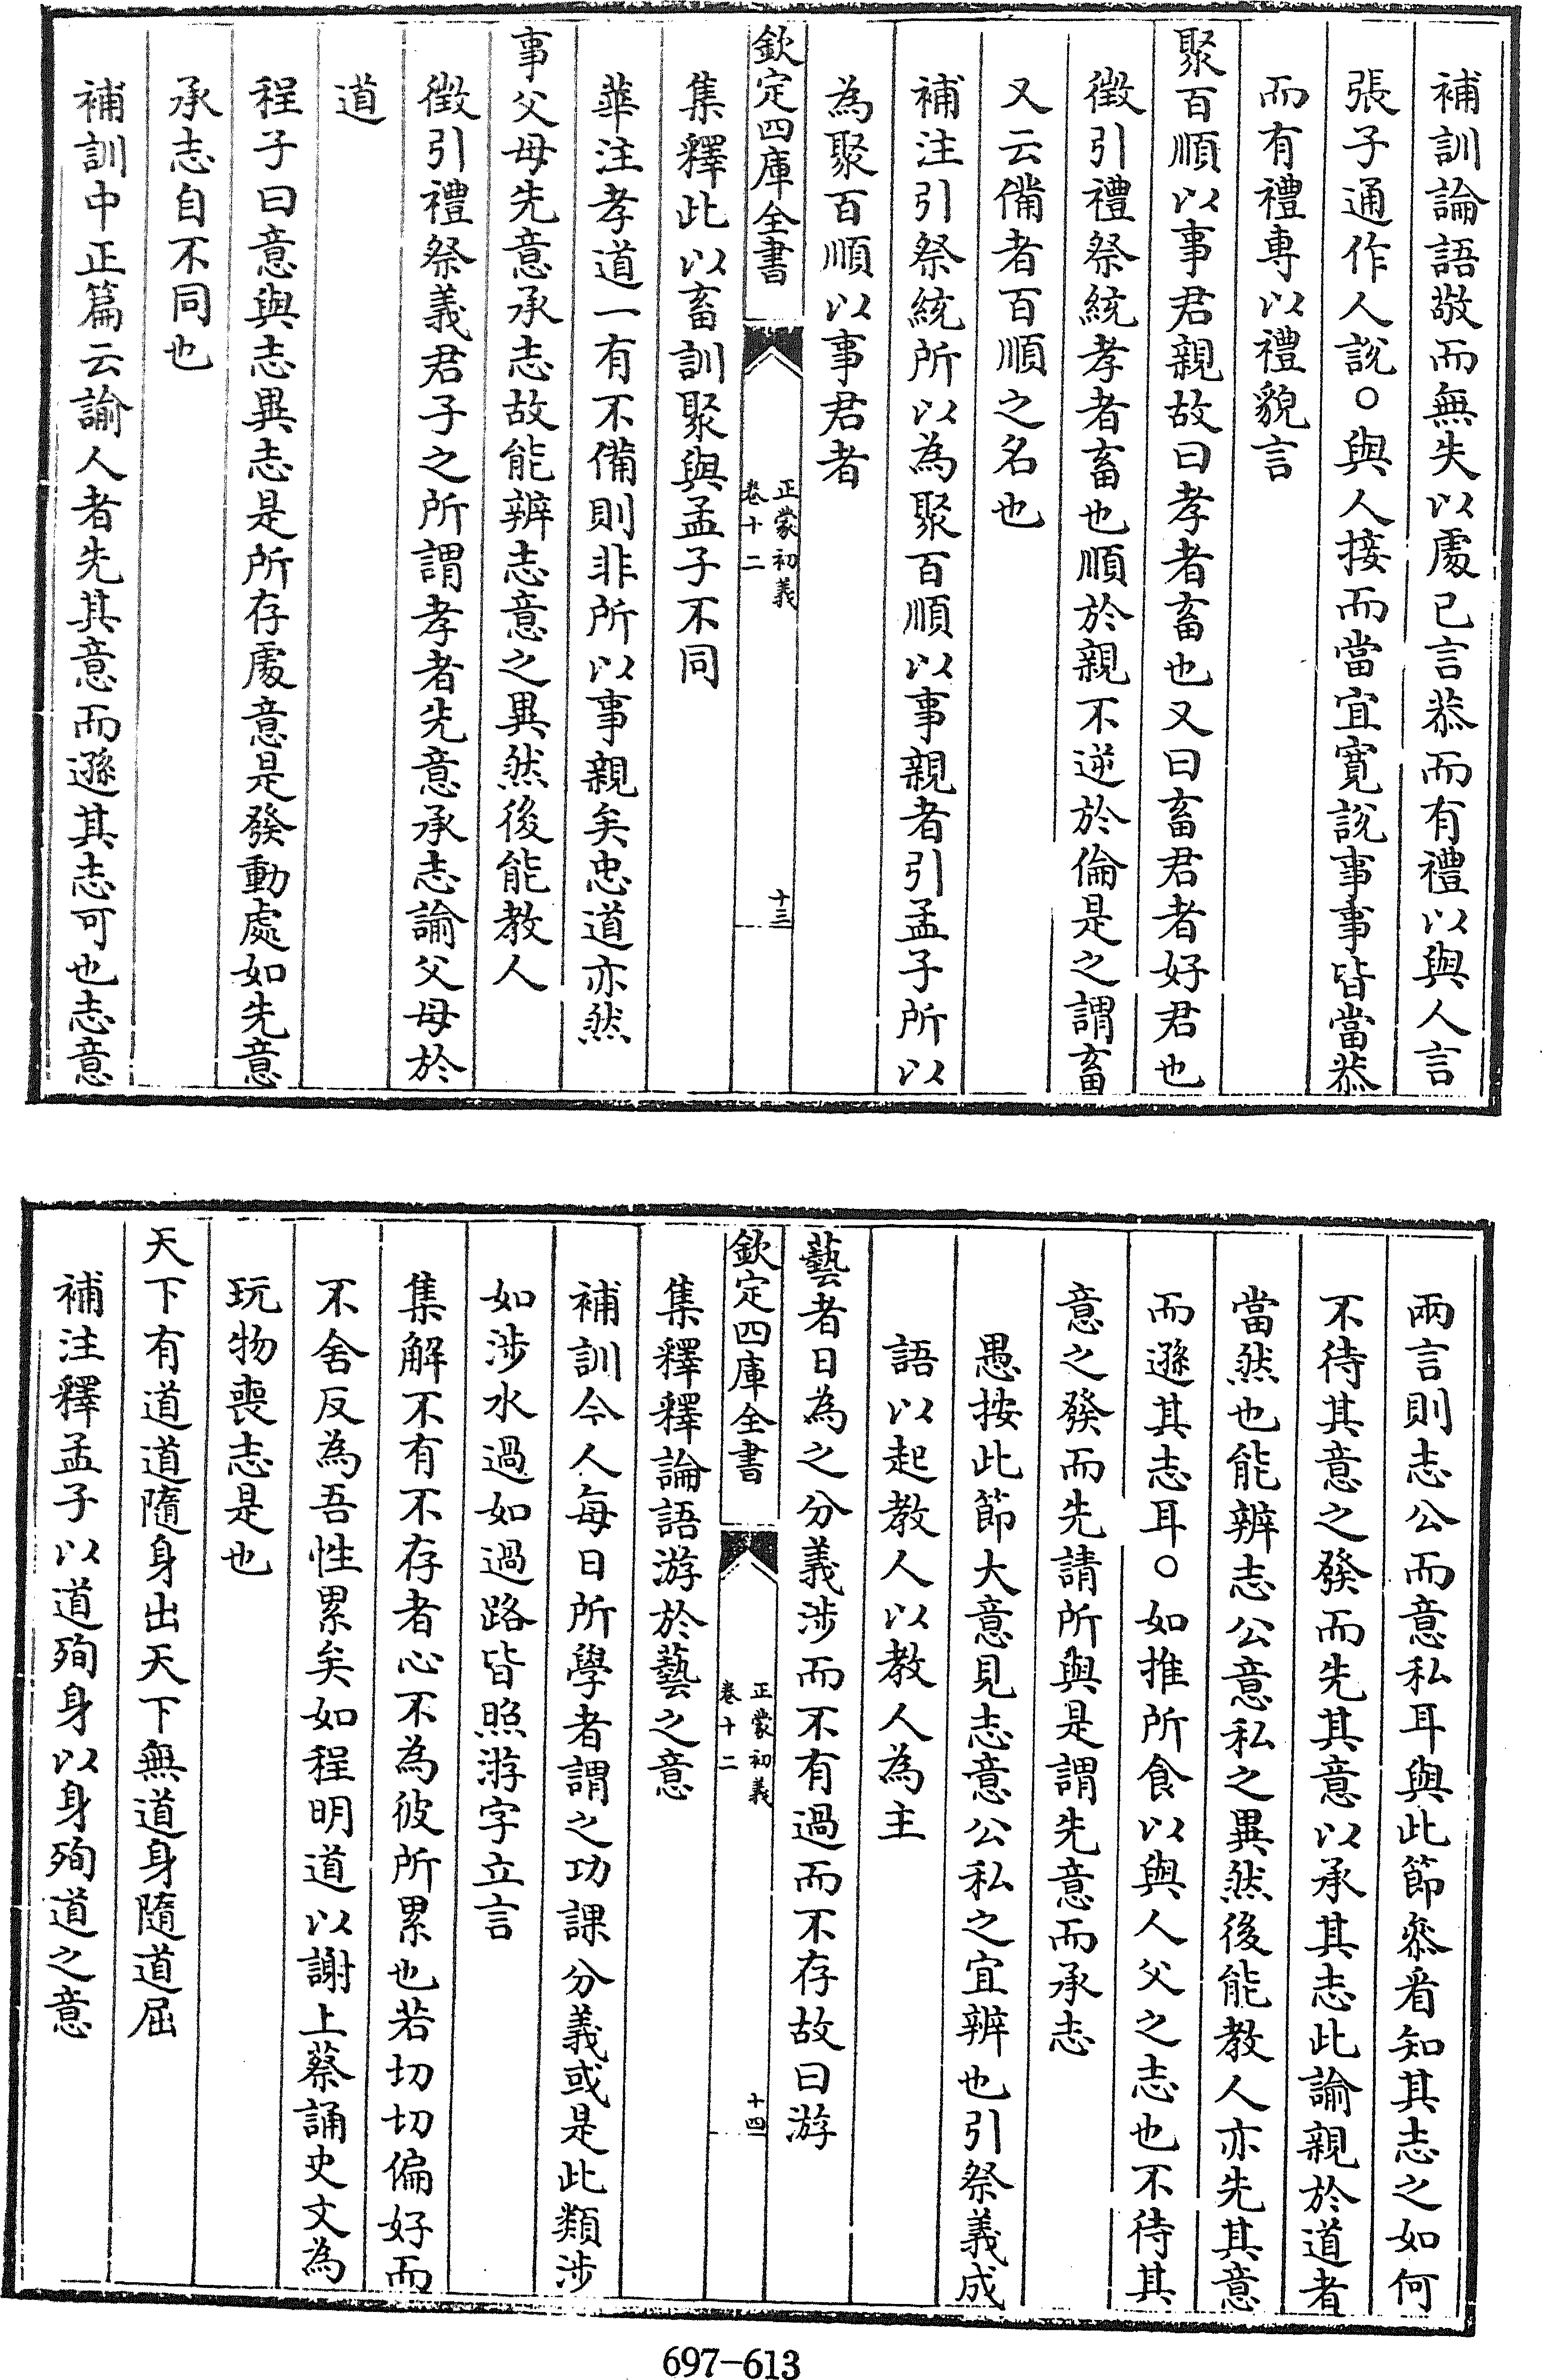 補訓論語敬而無失以處已言恭而有禮以與人言
張子通作人說○與人接而當宜寬說事事皆當恭
而有禮專以禮貌言
聚百順以事君親故曰孝者畜也又曰畜君者好君也
徵引禮祭統孝者畜也順於親不逆於倫是之謂畜
又云備者百順之名也
補注引祭統所以為聚百順以事親者引孟子所以
為聚百順以事君者
欽定四庫全書
正蒙初義
卷十二
十三
集釋此以畜訓聚與孟子不同
華注孝道一有不備則非所以事親矣忠道亦然
事父母先意承志故能辨志意之異然後能教人
徵引禮祭義君子之所謂孝者先意承志諭父母於
道
程子曰意與志異志是所存處意是發動處如先意
承志自不同也
補訓中正篇云諭人者先其意而遜其志可也志意
兩言則志公而意私耳與此節叅看知其志之如何
不待其意之發而先其意以承其志此諭親於道者
當然也能辨志公意私之異然後能教人亦先其意
而遜其志耳○如推所食以與人父之志也不待其
意之發而先請所與是謂先意而承志
愚按此節大意見志意公私之宜辨也引祭義成
語以起教人以教人為主
藝者日為之分義涉而不有過而不存故曰游
欽定四庫全書
正蒙初義
卷十二
十四
集釋釋論語游於藝之意
補訓今人每日所學者謂之功課分義或是此類涉
如涉水過如過路皆照游字立言
集解不有不存者心不為彼所累也若切切偏好而
不舍反為吾性累矣如程明道以謝上蔡誦史文為
玩物喪志是也
天下有道道隨身出天下無道身隨道屈
補注釋孟子以道殉身以身殉道之意
697-613